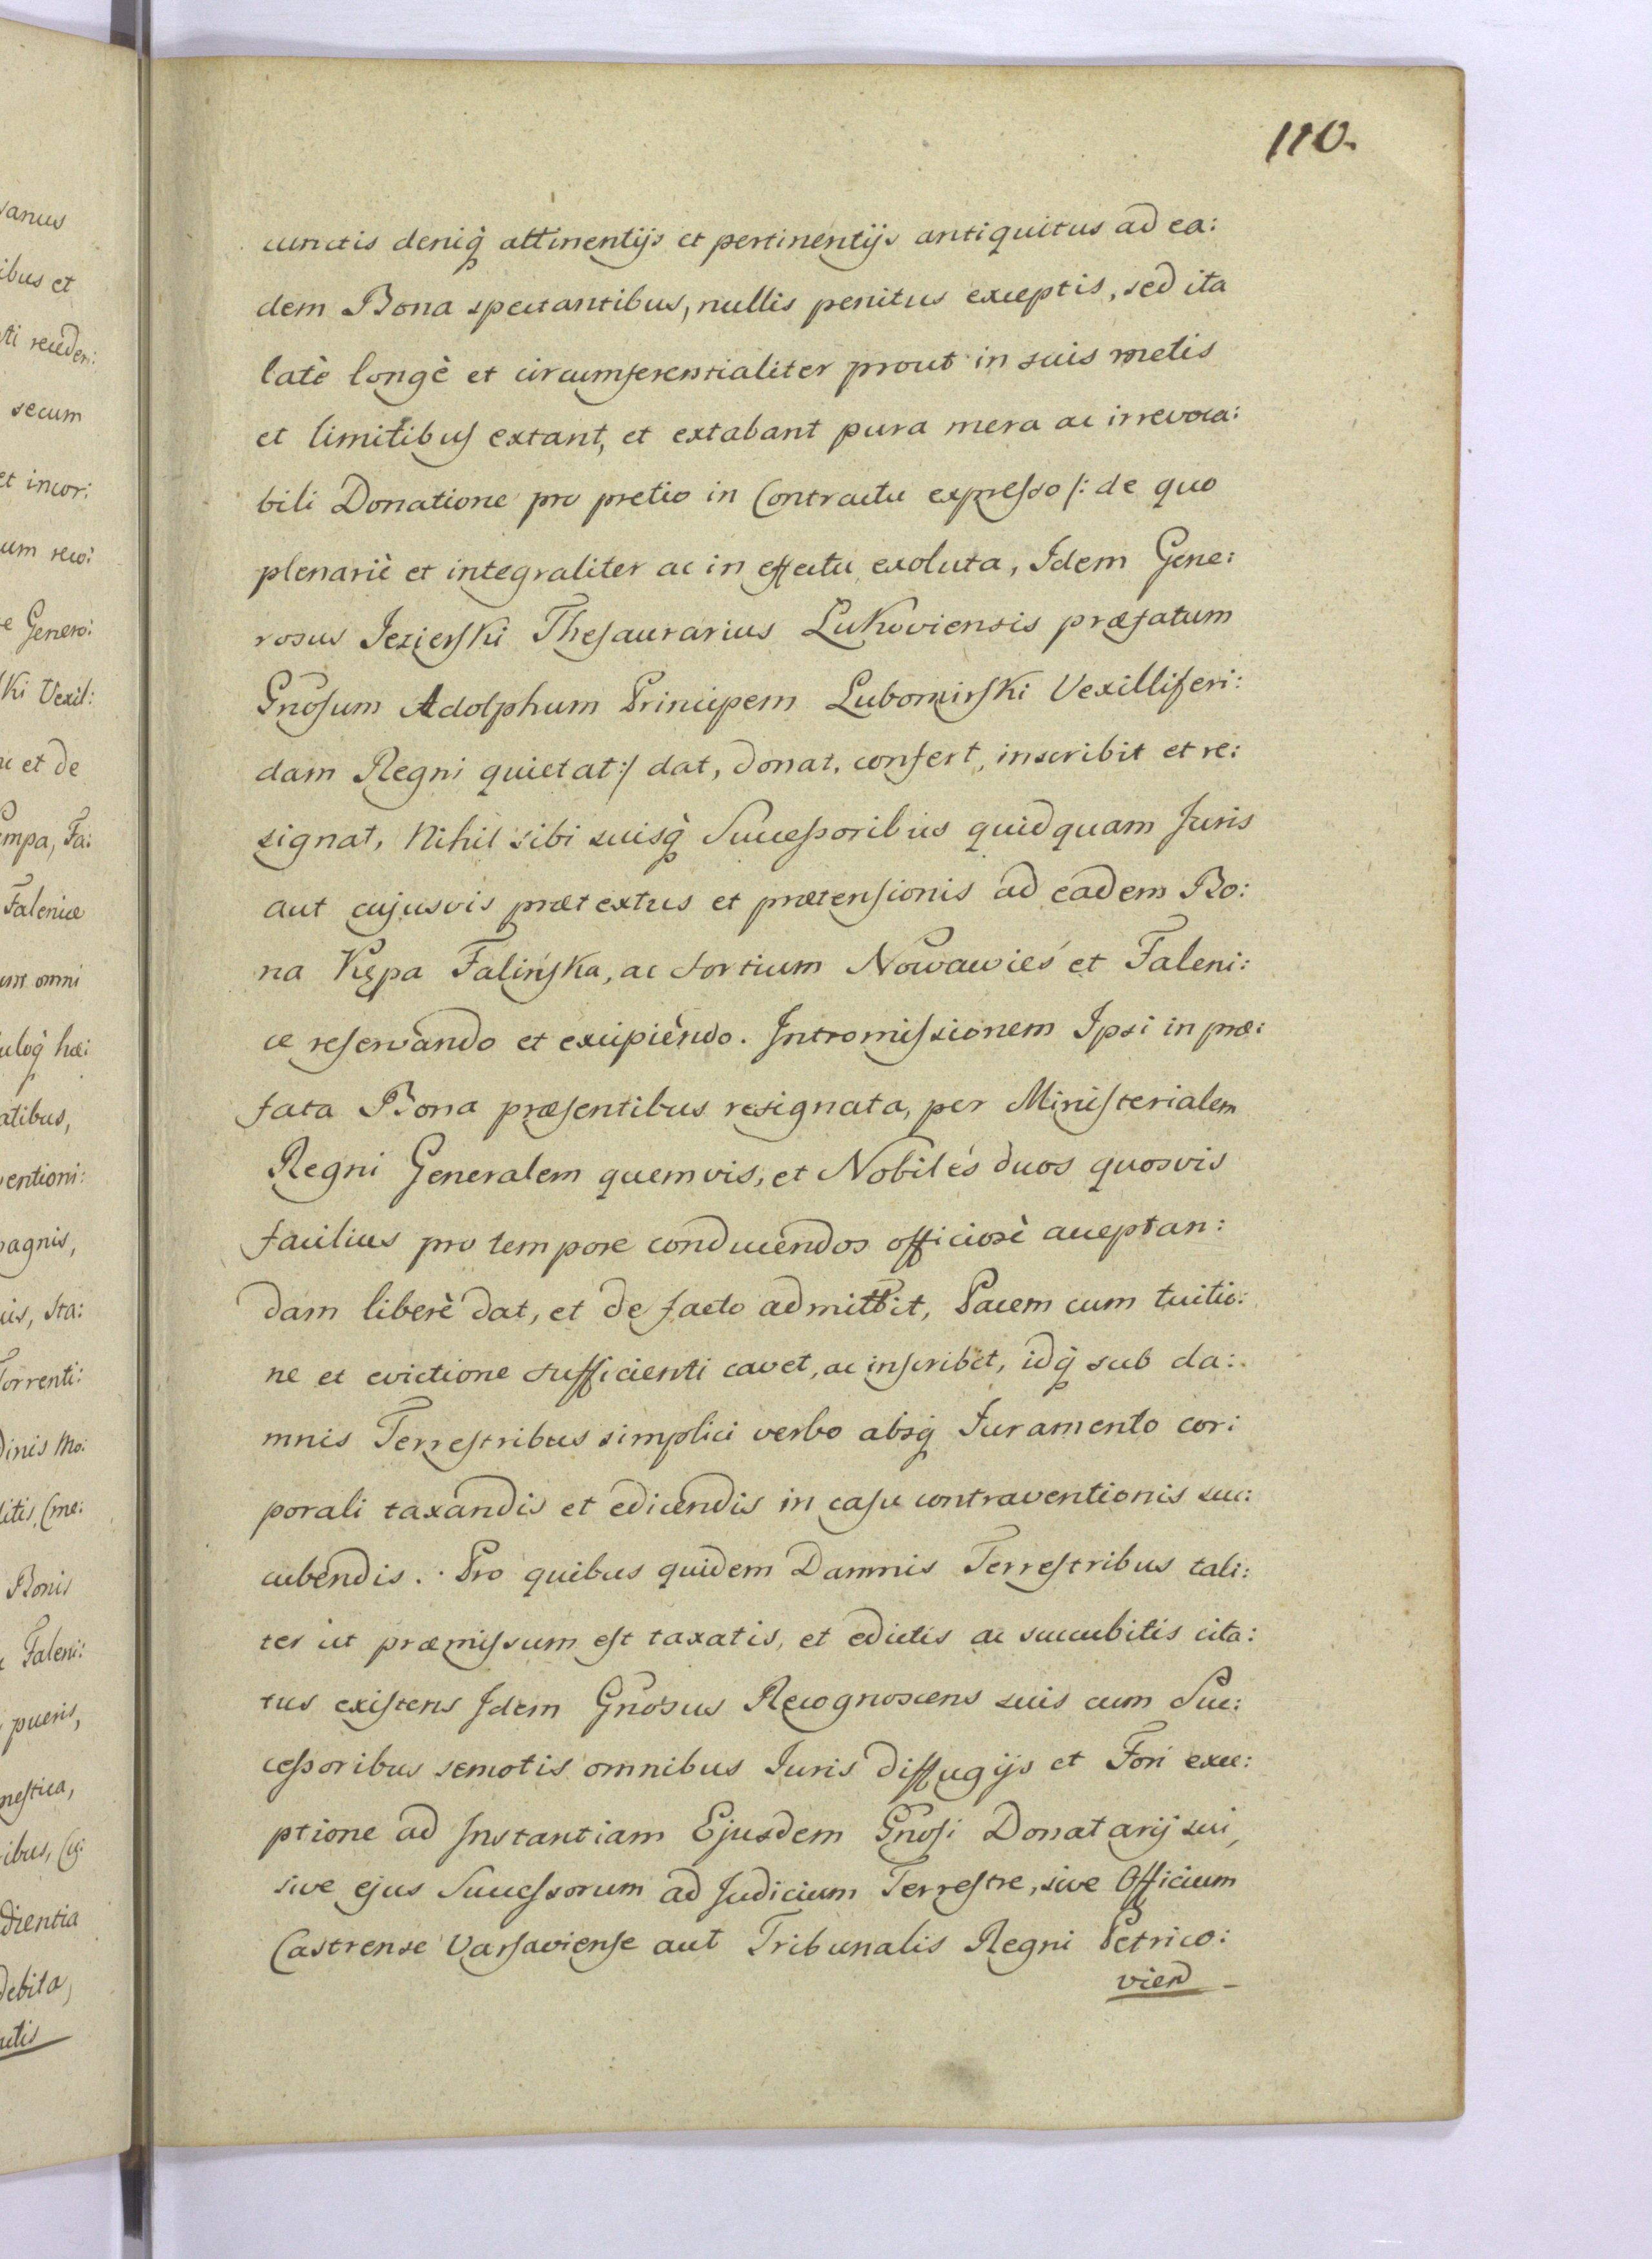 110.
cunctis deniq̀ attinentijs et pertinentijs antiquitus ad ea:
dem Bona spectantibus, nullis penitus exceptis, sed ita
latè longè et circumferentialiter prout in suis metis
et limitibus extant, et extabant pura mera ac irrevoca:
bili Donatione pro pretio in Contractu expresso /: de quo
plenariè et integraliter ac in effectu exoluta, Idem Gene:
rosus Jezierski Thesaurarius Lukoviensis præfatum
Gnosum Adolphum Principem Lubomirski Vexilliferi:
dam Regni quietat :/ dat, donat, confert, inscribit et re:
signat, Nihil sibi suisq̀ Successoribus quidquam Juris
aut cujusvis prætextus et prætensionis ad eadem Bo:
na Kępa Falińska, ac sortium Nowawieś et Faleni:
cæ reservando et excipiendo. Intromissionem Ipsi in præ:
fata Bona præsentibus resignata, per Ministerialem
Regni Generalem quemvis, et Nobiles duos quosvis
facilius pro tempore conducendos officiosè acceptan:
dam liberè dat, et de facto admittit, Pacem cum tuitio:
ne et evictione sufficienti cavet, ac inscribit, idq̀ sub da:
mnis Terrestribus simplici verbo absq̀ Juramento cor:
porali taxandis et edicendis in casu contraventionis suc:
cubendis. Pro quibus quidem Damnis Terrestribus tali:
ter ut præmissum est taxatis, et edictis ac succubitis cita:
tus existens Idem Gnosus Recognoscens suis cum Suc:
cessoribus semotis omnibus Juris diffugijs et Fori exce:
ptione ad Instantiam Ejusdem Gnosi Donatarij sui,
sive ejus Successorum ad Judicium Terrestre, sive Officium
Castrense Varsaviense aut Tribunalis Regni Petrico:
vien